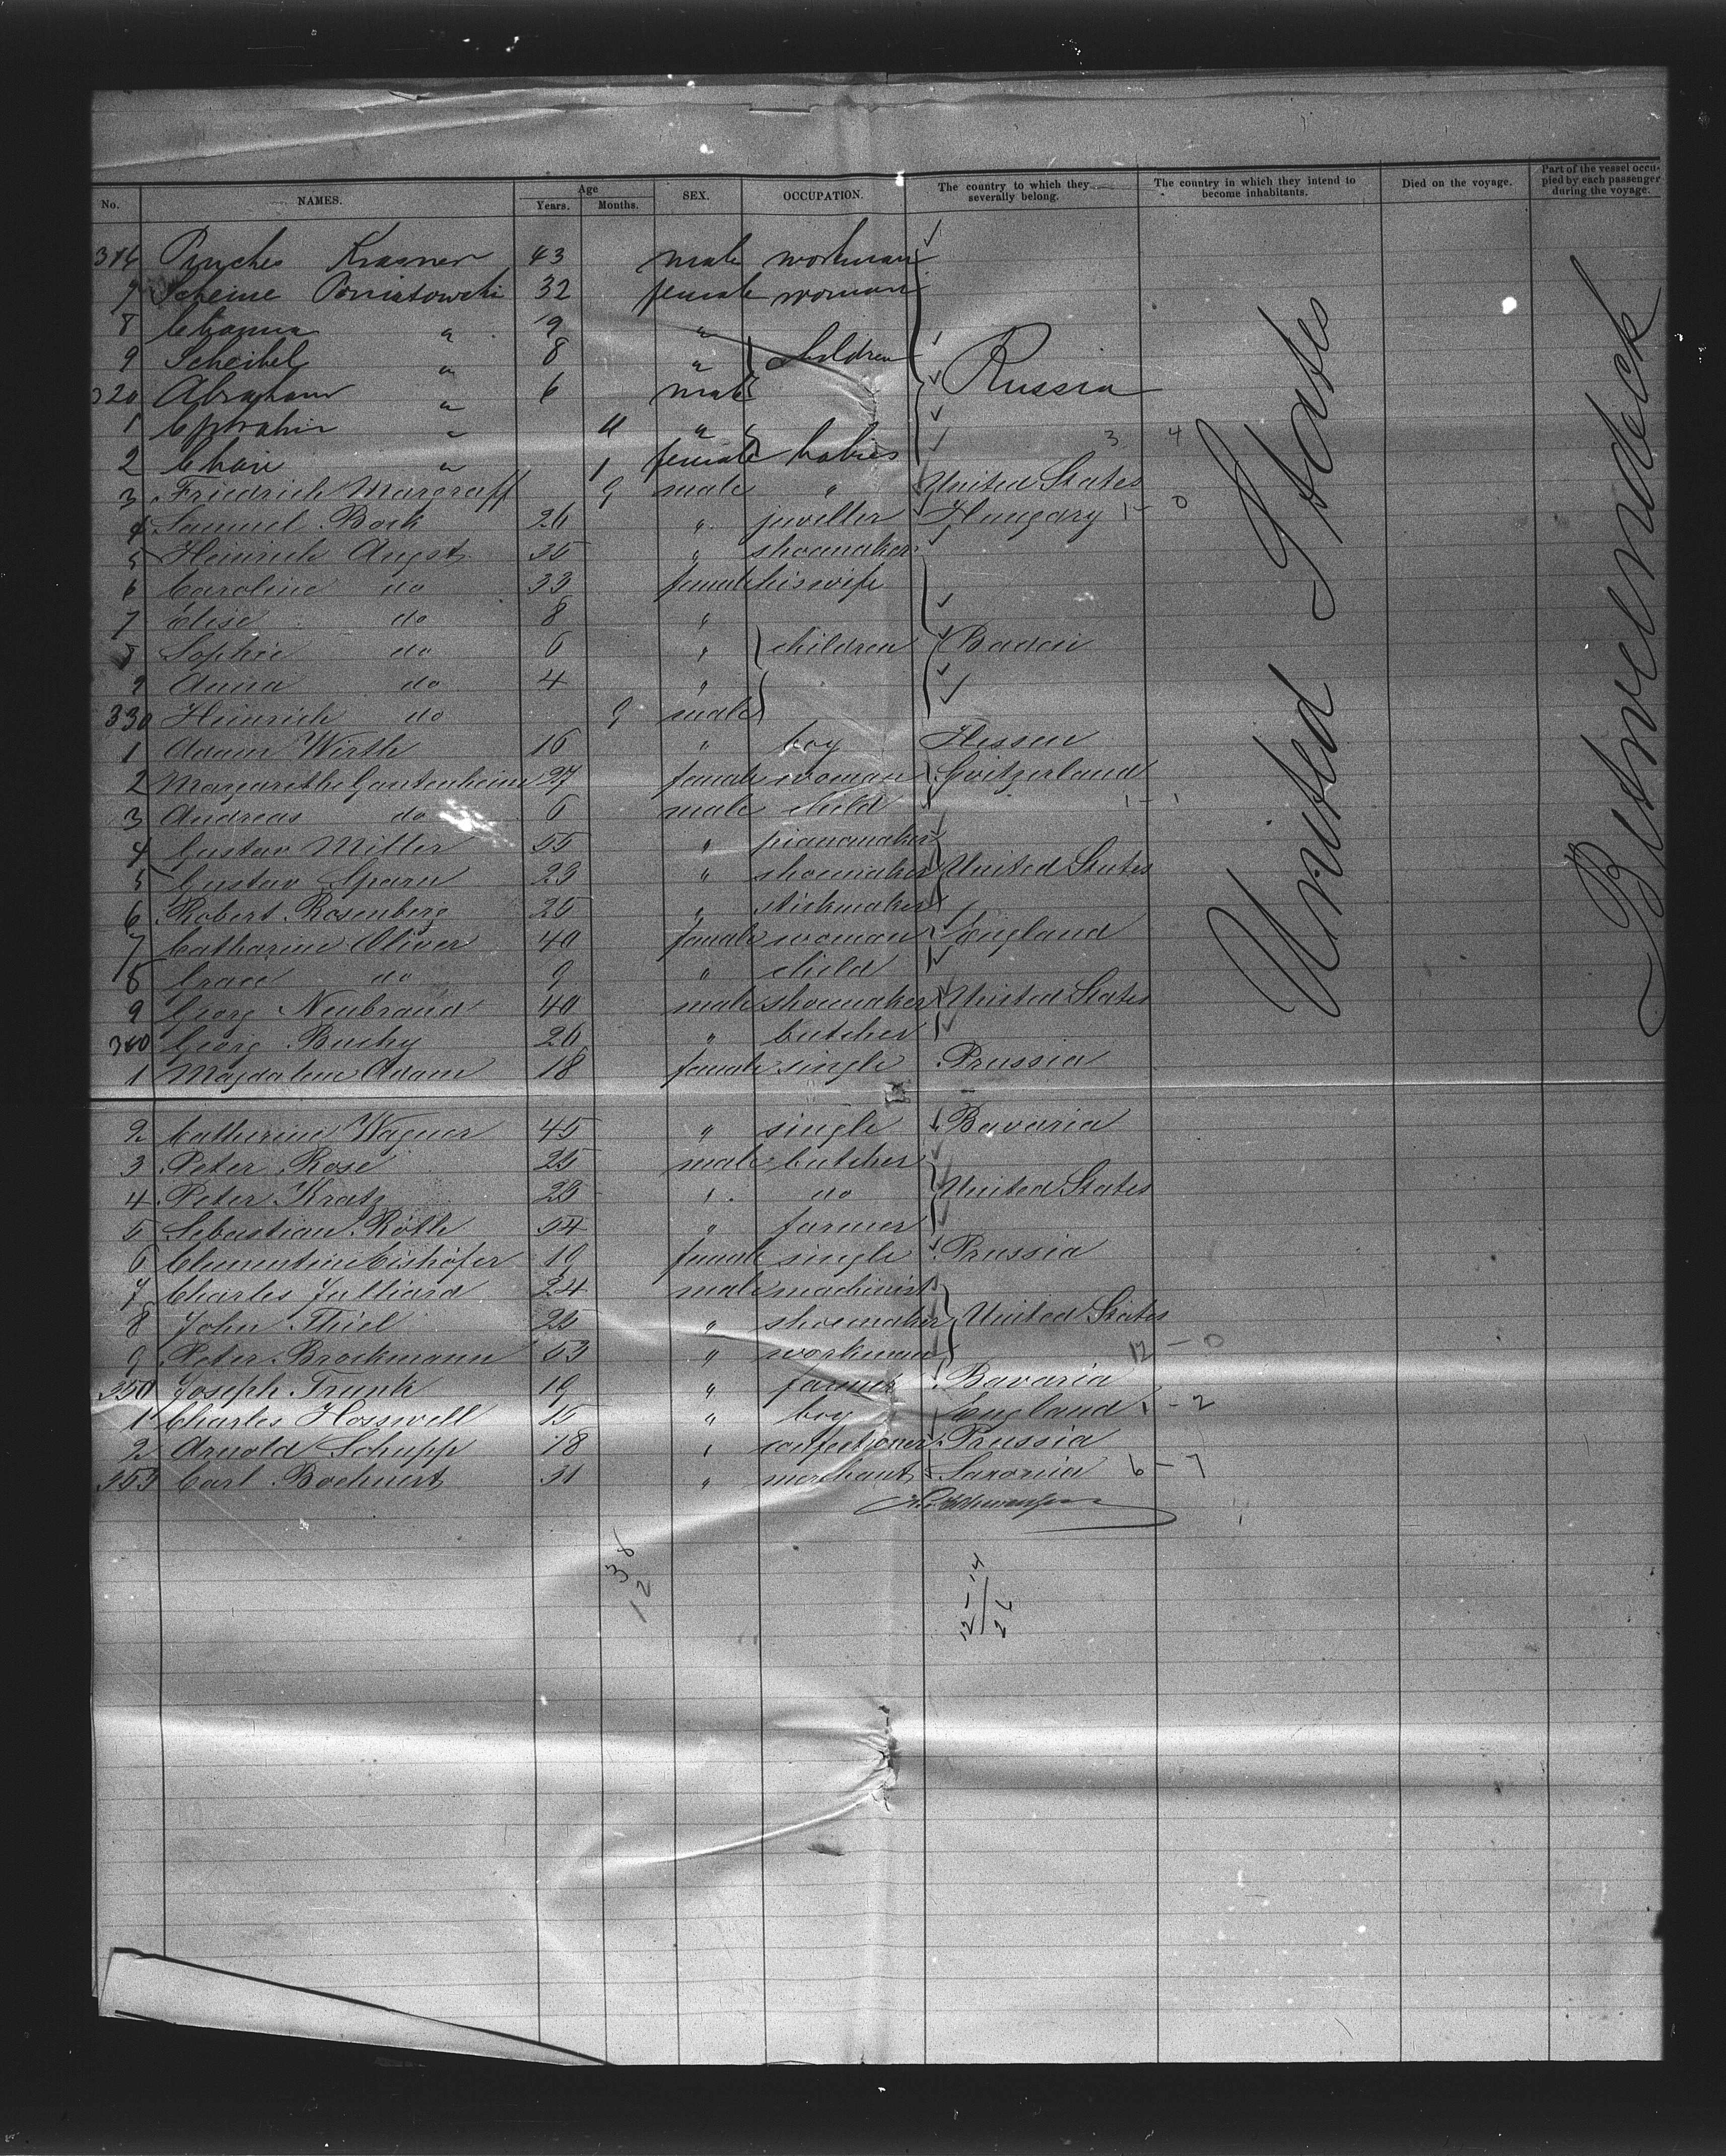 No. NAMES. Age Years. Months. SEX. OCCUPATION. The country to which they severally belong. The country in which they intend to become inhabitants. Died on the voyage. Part of the vessel occupied by each passenger during the voyage.
316 Pinches Krasner 43 male workman
7 Scheine Poniatowski 32 female woman
8 Channa " 9 "
9 Scheibel " 8 " children
320 Abraham " 6 male Russia
1 Ephraim " 11 "
2 Chaie " 1 female babies 3 4
3 Friedrich Margraff 9 male " United States
4 Samuel Bock 26 " juweller Hungary 1 - 0
5 Heinrich Angst 35 " shoemaker
6 Caroline do 33 female his wife
7 Elise do 8 "
8 Sophie do 6 " children Baden
9 Anna do 4 "
330 Heinrich do 9 male
1 Adam Wirth 16 " boy Hessen
2 Margarethe Gantenheim 27 female woman Switzerland
3 Andreas do 6 male child 1 - 1
4 Gustav Miller 55 " pianomaker
5 Gustav Sparn 23 " shoemaker United States
6 Robert Rosenberg 25 " stickmaker
7 Catharine Oliver 40 female woman England
8 Grace do 9 " child
9 Georg Neubrand 40 male shoemaker United States
340 Georg Bushy 26 " butcher
1 Magdalena Adam 18 female single Prussia
2 Catherine Wagner 45 " single Bavaria
3 Peter Rose 25 male butcher
4 Peter Kratz 23 " do United States
5 Sebastian Röth 54 " farmer
6 Clementine Eishöfer 19 female single Prussia
7 Charles Julliard 24 male machinist
8 John Thiel 25 " shoemaker United States
9 Peter Brockmann 53 " workman 12 - 0
350 Joseph Trunk 19 " farmer Bavaria
1 Charles Hosswell 15 " boy England 1 - 2
2 Arnold Schupp 18 " confectioner Prussia
353 Carl Boehnert 31 " merchant Saxonia 6 - 7
United States
Betweendeck
38
12
12 - 14
26